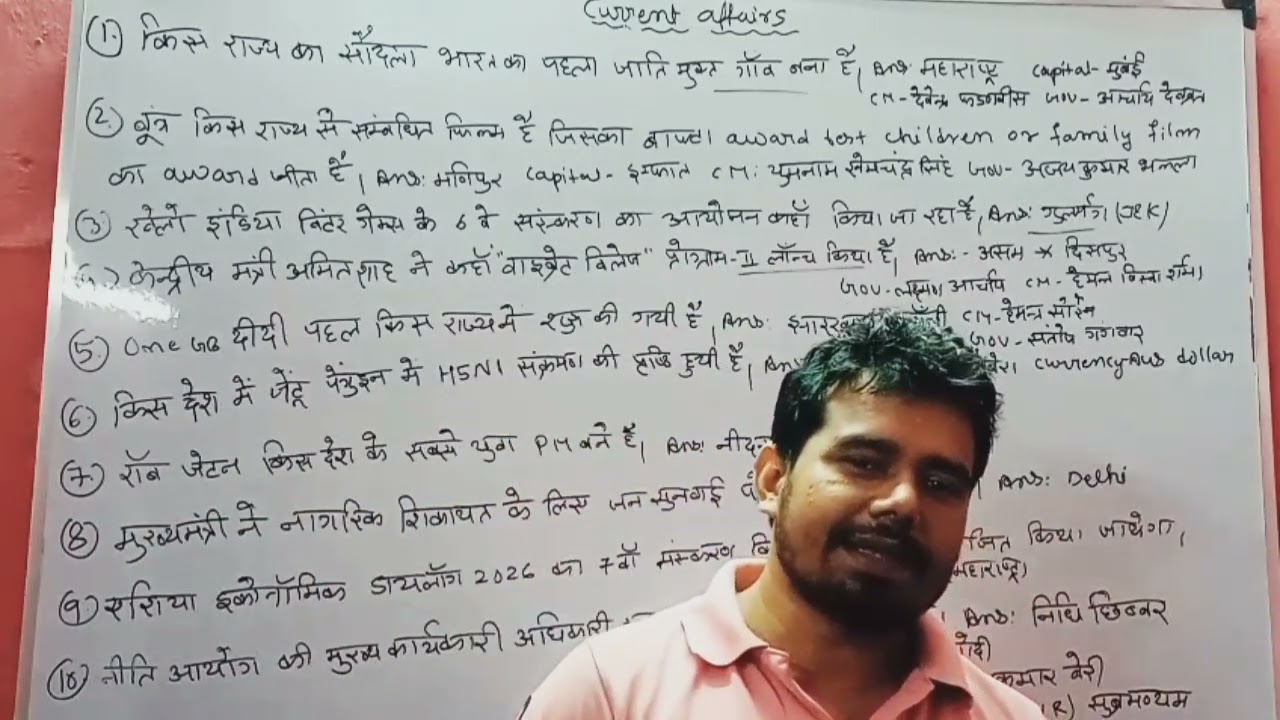 Current affairs
① किस राज्य का सौंदला भारत का पहला जाति मुक्त गाँव बना है, Ans: महाराष्ट्र capital- मुंबई
CM- देवेन्द्र फडणवीस Gov- आचार्य देवव्रत
② बूंग किस राज्य से सम्बंधित फिल्म है जिसका बाफ्टा award best children or family film
का award जीता है, Ans: मणिपुर capital- इम्फाल CM: युमनाम खेमचंद्र सिंह Gov- अजय कुमार भल्ला
③ खेलो इंडिया विंटर गेम्स के 6 वे संस्करण का आयोजन कहाँ किया जा रहा है, Ans: गुलमर्ग (J&K)
केन्द्रीय मंत्री अमित शाह ने कहाँ "वाइब्रेंट विलेज" प्रोग्राम-II लॉन्च किया है, Ans:- असम * दिसपुर
Gov- लक्ष्मण आचार्य CM- हेमन्त विस्वा शर्मा
⑤ One GB दीदी पहल किस राज्य मे शुरू की गयी है, Ans: CM- हेमन्त सोरेन
Gov- संतोष गंगवार
⑥ किस देश में जेंटू पेंगुइन में H5N1 संक्रमण की पुष्टि हुयी है, currency Aus dollar
⑦ रॉब जेटन किस देश के सबसे युवा PM बने है, Ans:
⑧ मुख्यमंत्री ने नागरिक शिकायत के लिए जन सुनवाई Ans: Delhi
⑨ एशिया इकोनॉमिक डायलॉग 2026 का 7वाँ संस्करण किया जायेगा,
महाराष्ट्र)
⑩ नीति आयोग की मुख्य कार्यकारी अधिकारी Ans: निधि छिब्बर
कुमार बेरी
सुब्रमण्यम